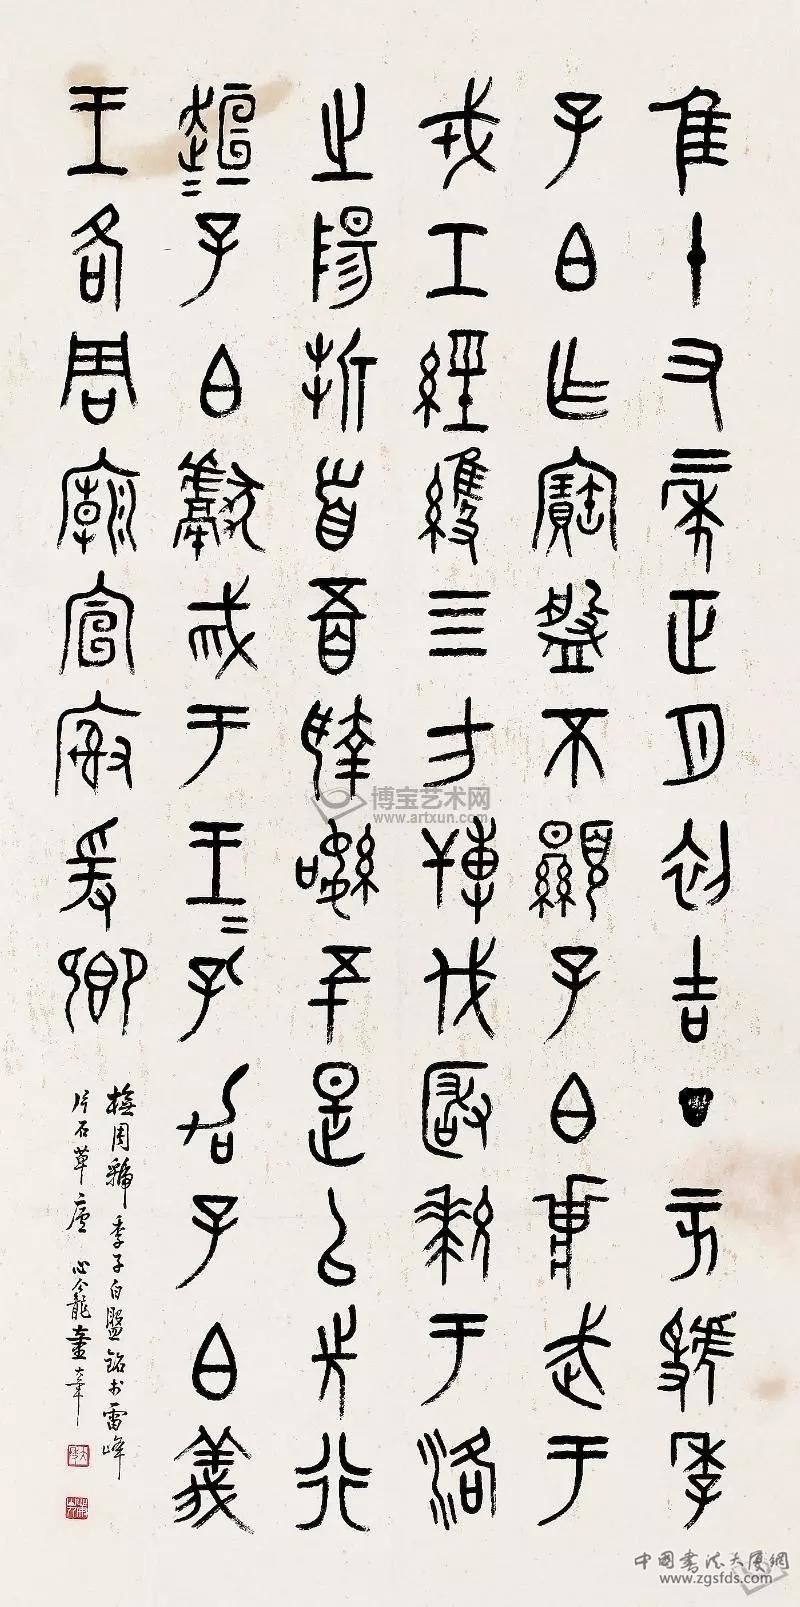 隹十又二年正月初吉丁亥虢季
子白乍寶盤不顯子白壯武于
戎工經維四方搏伐玁狁于洛
之陽折首五百執訊五十是以先行
趩=子白獻馘于王=孔加子白義
王各周廟宣榭爰鄉
橅周虢季子白盤銘於雷峰
片石草廬 心龕童大年
博宝艺术网
www.artxun.com
中國書法大廈網
www.zgsfds.com